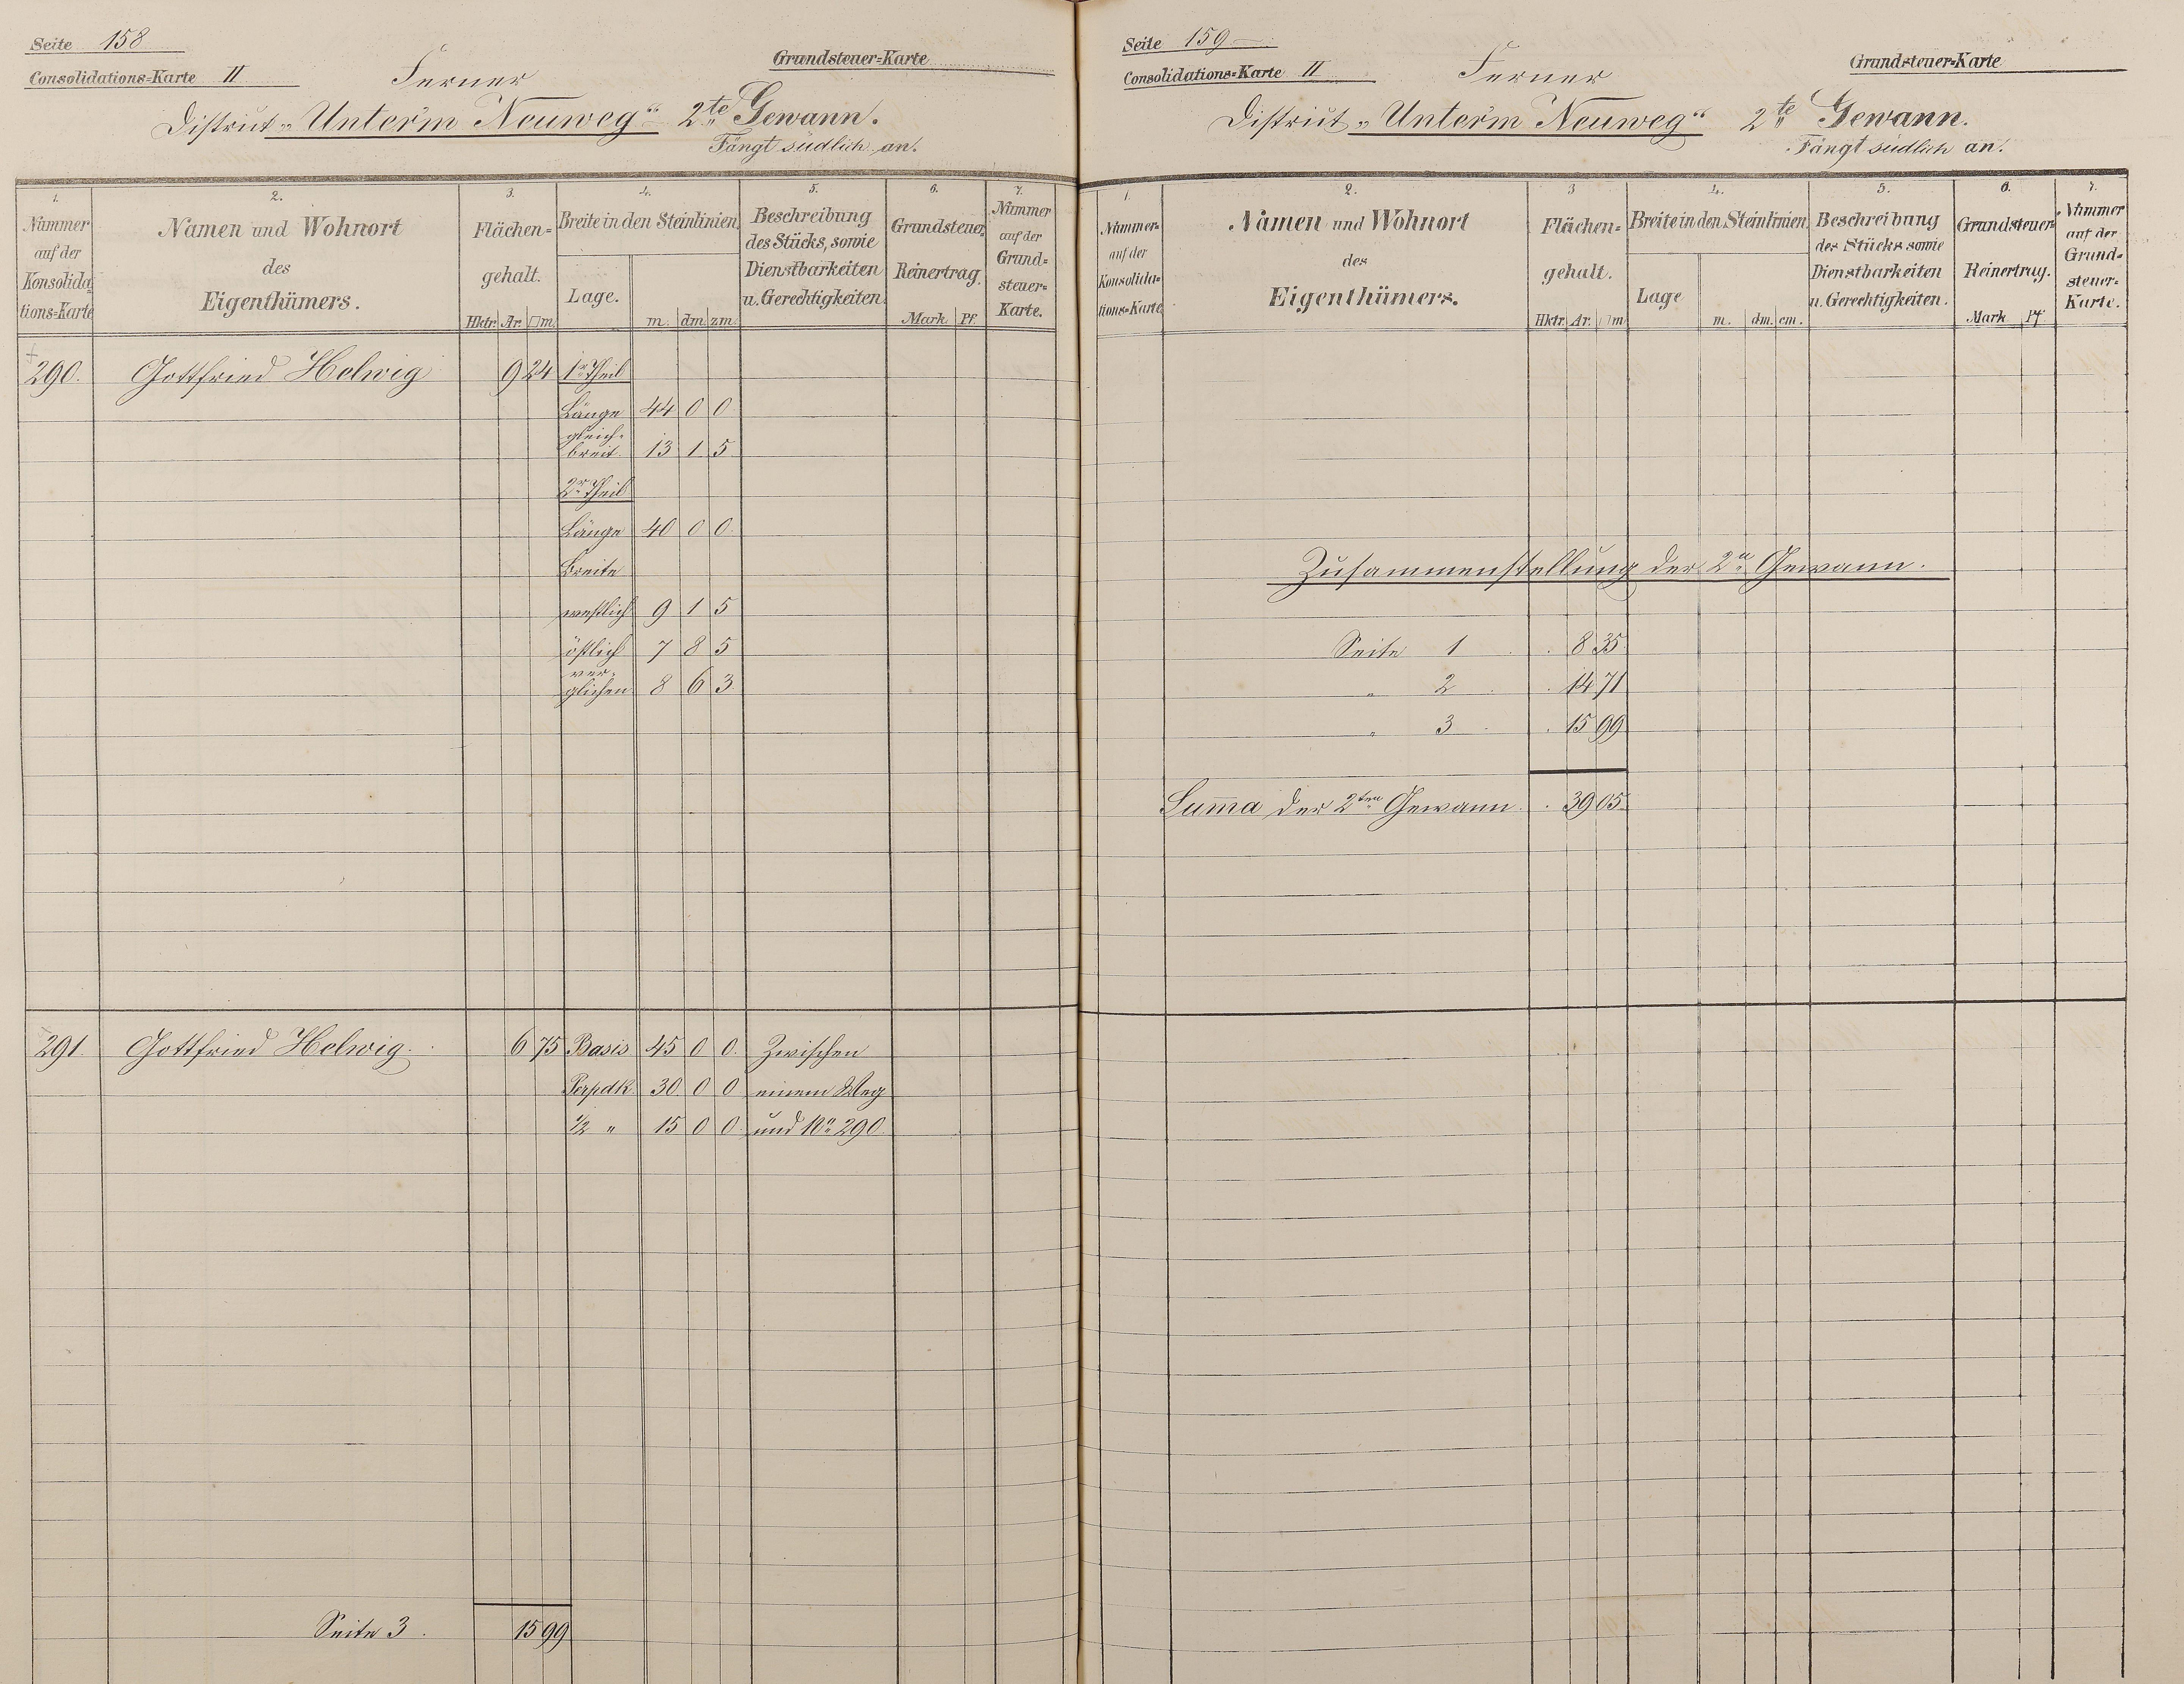 Seite 158
Consolidations=Karte II
Ferner
Grundsteuer=Karte
District „Unter'm Neuweg“ 2te Gewann.
Fängt südlich an.
1. 2. 3. 4. 5. 6. 7.
Nummer auf der Konsolidations=Karte
Namen und Wohnort des Eigenthümers.
Flächen=gehalt.
Hktr. Ar. □m.
Breite in den Steinlinien
Lage. m. dm. zm.
Beschreibung des Stücks, sowie Dienstbarkeiten u. Gerechtigkeiten.
Grundsteuer Reinertrag.
Mark Pf.
Nummer auf der Grund=steuer=Karte.
290. Gottfried Helwig 9 24 1r Theil
Länge 44 0 0
gleich=
breit. 13 1 5
2r Theil
Länge 40 0 0
Breite
westlich 9 1 5
östlich 7 8 5
ver=
glichen 8 6 3
291. Gottfried Helwig. 6 75 Basis 45 0 0. Zwischen
Perpdk. 30 0 0 einem Weg
1/2 „ 15 0 0 und No 290.
Seite 3. 15 99
Seite 159
Consolidations=Karte II
Ferner
Grundsteuer=Karte
District „Unter'm Neuweg“ 2te Gewann.
Fängt südlich an.
1. 2. 3 4. 5. 6. 7.
Nummer auf der Konsolidations=Karte
Namen und Wohnort des Eigenthümers.
Flächen=gehalt.
Hktr. Ar. □m
Breite in den Steinlinien.
Lage m. dm. cm.
Beschreibung des Stücks sowie Dienstbarkeiten u. Gerechtigkeiten.
Grundsteuer= Reinertrag.
Mark Pf.
Nummer auf der Grund=steuer=Karte.
Zusammenstellung der 2n Gewann.
Seite 1 . 8 35
„ 2 . 14 71
„ 3 . 15 99
Sum̅a der 2ten Gewann . 39 05